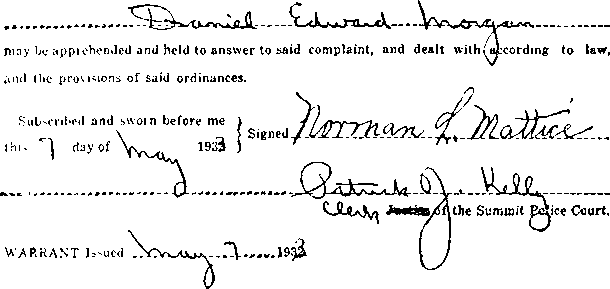 Daniel Edward Morgan
may be apprehended and held to answer to said complaint, and dealt with according to law,
and the provisions of said ordinances.
Subscribed and sworn before me
this 7 day of May 1933
Signed Norman L. Mattice
Patrick J. Kelly
Clerk Justice of the Summit Police Court.
WARRANT Issued May 7 1933